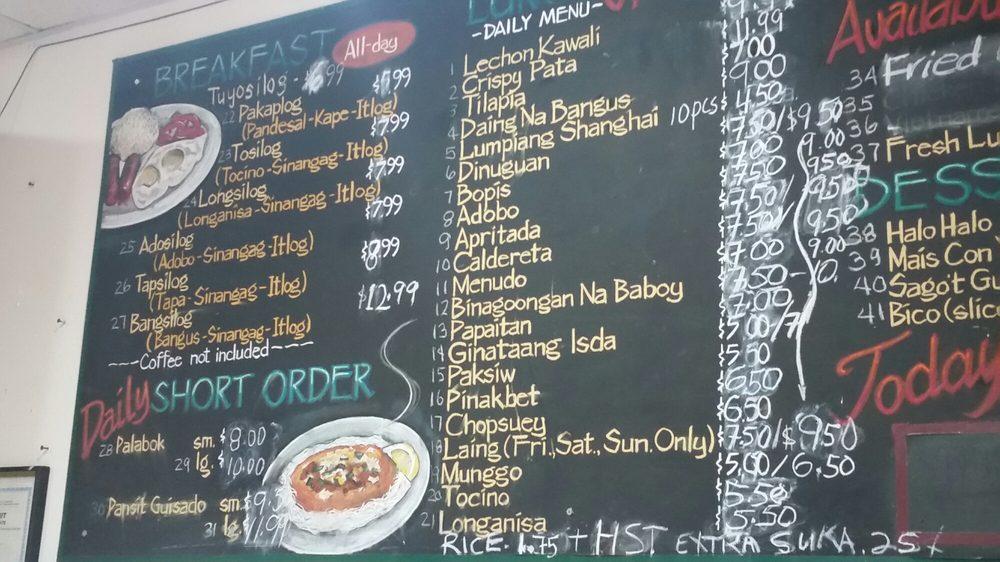 BREAKFAST All-day
Tuyosilog - $6.99
22 Pakaplog $5.99
(Pandesal-Kape-Itlog)
23 Tosilog $7.99
(Tocino-Sinangag-Itlog)
24 Longsilog $7.99
(Longanisa-Sinangag-Itlog)
25 Adosilog $7.99
(Adobo-Sinangag-Itlog)
26 Tapsilog $8.99
(Tapa-Sinangag-Itlog)
27 Bangsilog $12.99
(Bangus-Sinangag-Itlog)
----Coffee not included----
Daily SHORT ORDER
28 Palabok sm. $8.00
29 lg. $10.00
30 Pansit Guisado sm.
31 lg. $11.99
-DAILY MENU-
1 Lechon Kawali
2 Crispy Pata
3 Tilapia
4 Daing Na Bangus
5 Lumpiang Shanghai 10pcs
6 Dinuguan
7 Bopis
8 Adobo
9 Apritada
10 Caldereta
11 Menudo
12 Binagoongan Na Baboy
13 Papaitan
14 Ginataang Isda
15 Paksiw
16 Pinakbet
17 Chopsuey
18 Laing (Fri.,Sat., Sun. Only)
19 Munggo
20 Tocino
21 Longanisa
11.99
7.00
9.00
4.50
7.50/$9.50
7.00 9.00
7.50 9.50
7.50/ 9.50
7.50/ 9.50
7.00 9.00
7.50-10.
7.00
5.00/7
5.50
6.50
6.50
7.50/$9.50
5.00/6.50
5.50
5.50
RICE. 1.75 + HST EXTRA SUKA .25
34 Fried
35
36
37 Fresh
38 Halo Halo
39 Mais Con
40 Sago't
41 Bico
Today